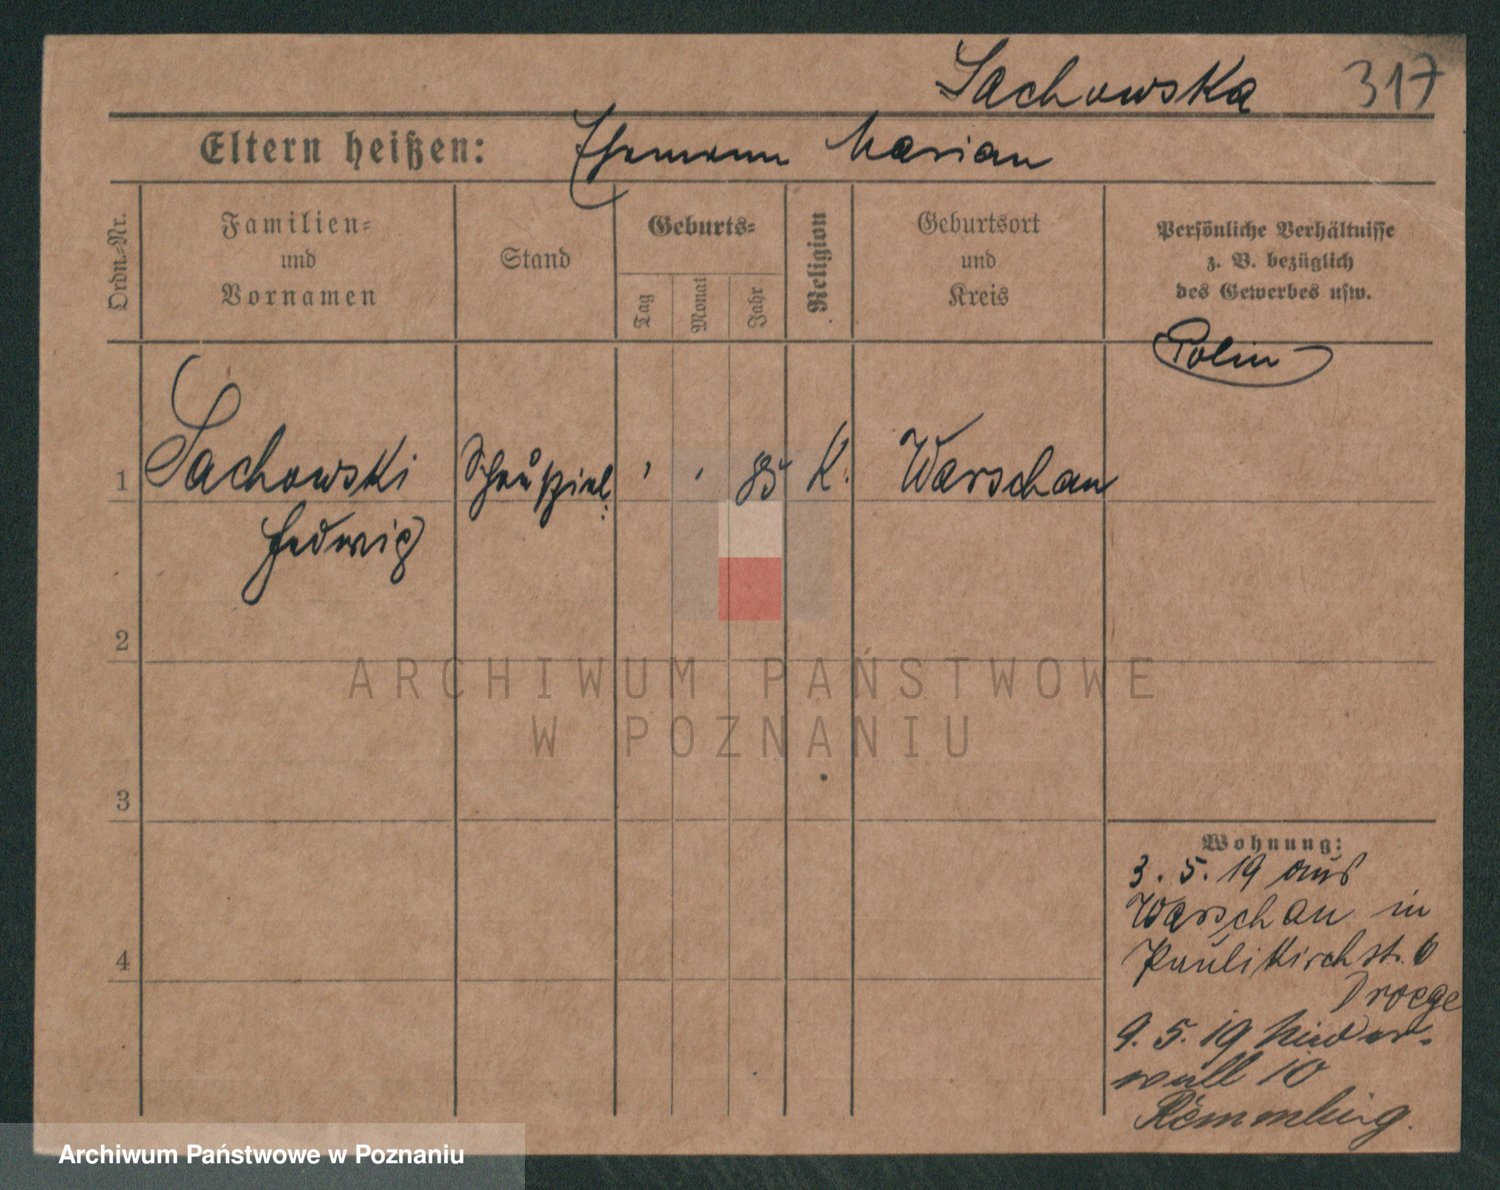 Sachowska 317
Eltern heißen: Ehemann Marian
Ordn.-Nr.
Familien-
und
Vornamen
Stand
Geburts-
Tag
Monat
Jahr
Religion
Geburtsort
und
Kreis
Persönliche Verhältnisse
z. B. bezüglich
des Gewerbes usw.
Polin
1 Sachowski Schauspiel. 85 K. Warschau
Hedwig
2
ARCHIWUM PAŃSTWOWE
W POZNANIU
3
Wohnung:
3. 5. 19 aus
Warschau in
Paulikirchstr. 6
Droege
4
9. 5. 19 Nieder-
wall 10
Archiwum Państwowe w Poznaniu